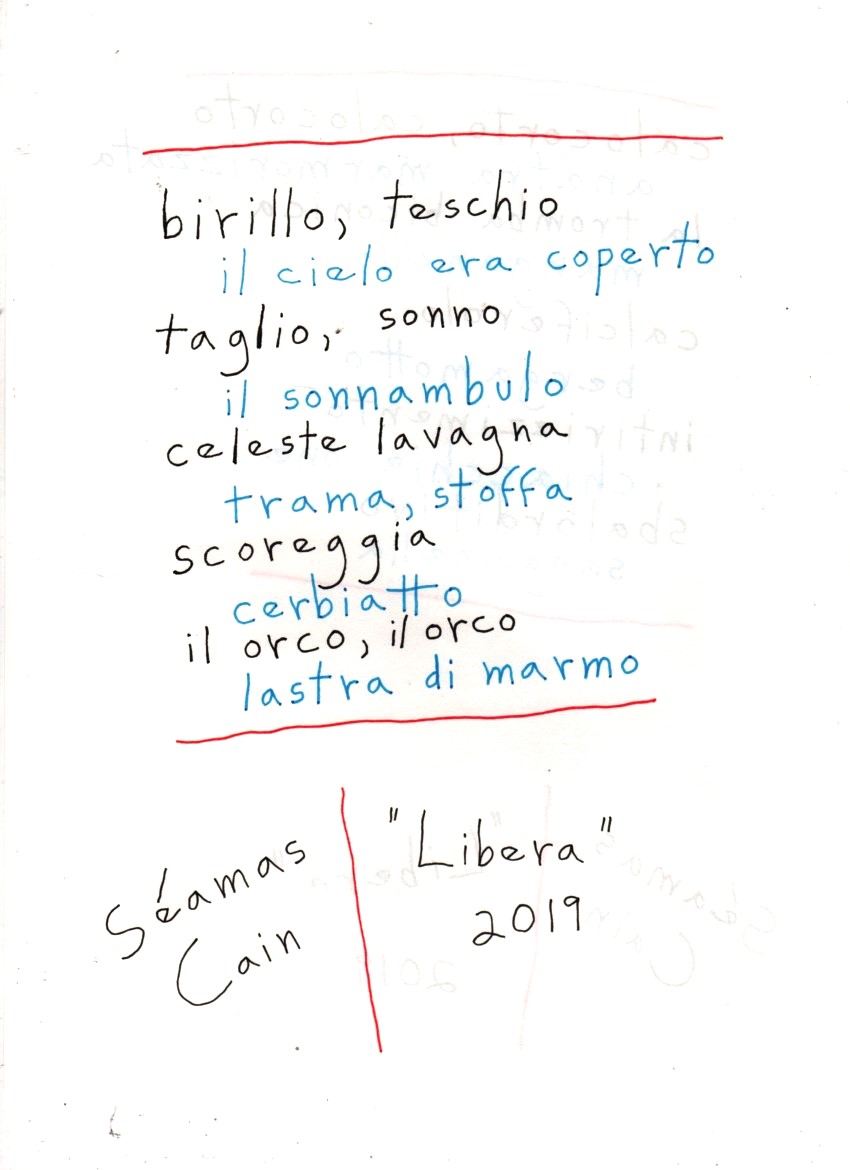 birillo, teschio
il cielo era coperto
taglio, sonno
il sonnambulo
celeste lavagna
trama, stoffa
scoreggia
cerbiatto
il orco, il orco
lastra di marmo
Séamas
Cain
"Libera"
2019